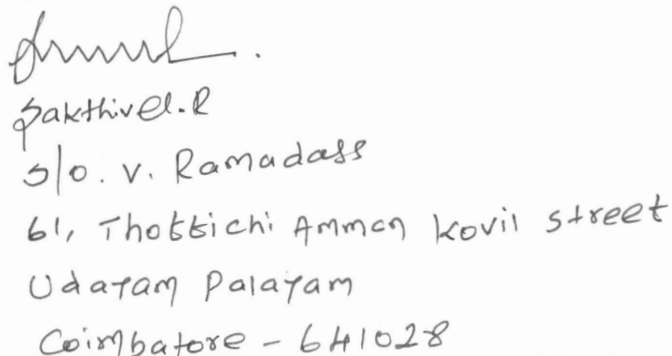 Sakthivel.R
S/o. V. Ramadass
61, Thottichi Amman Kovil street
Udayam Palayam
Coimbatore - 641028